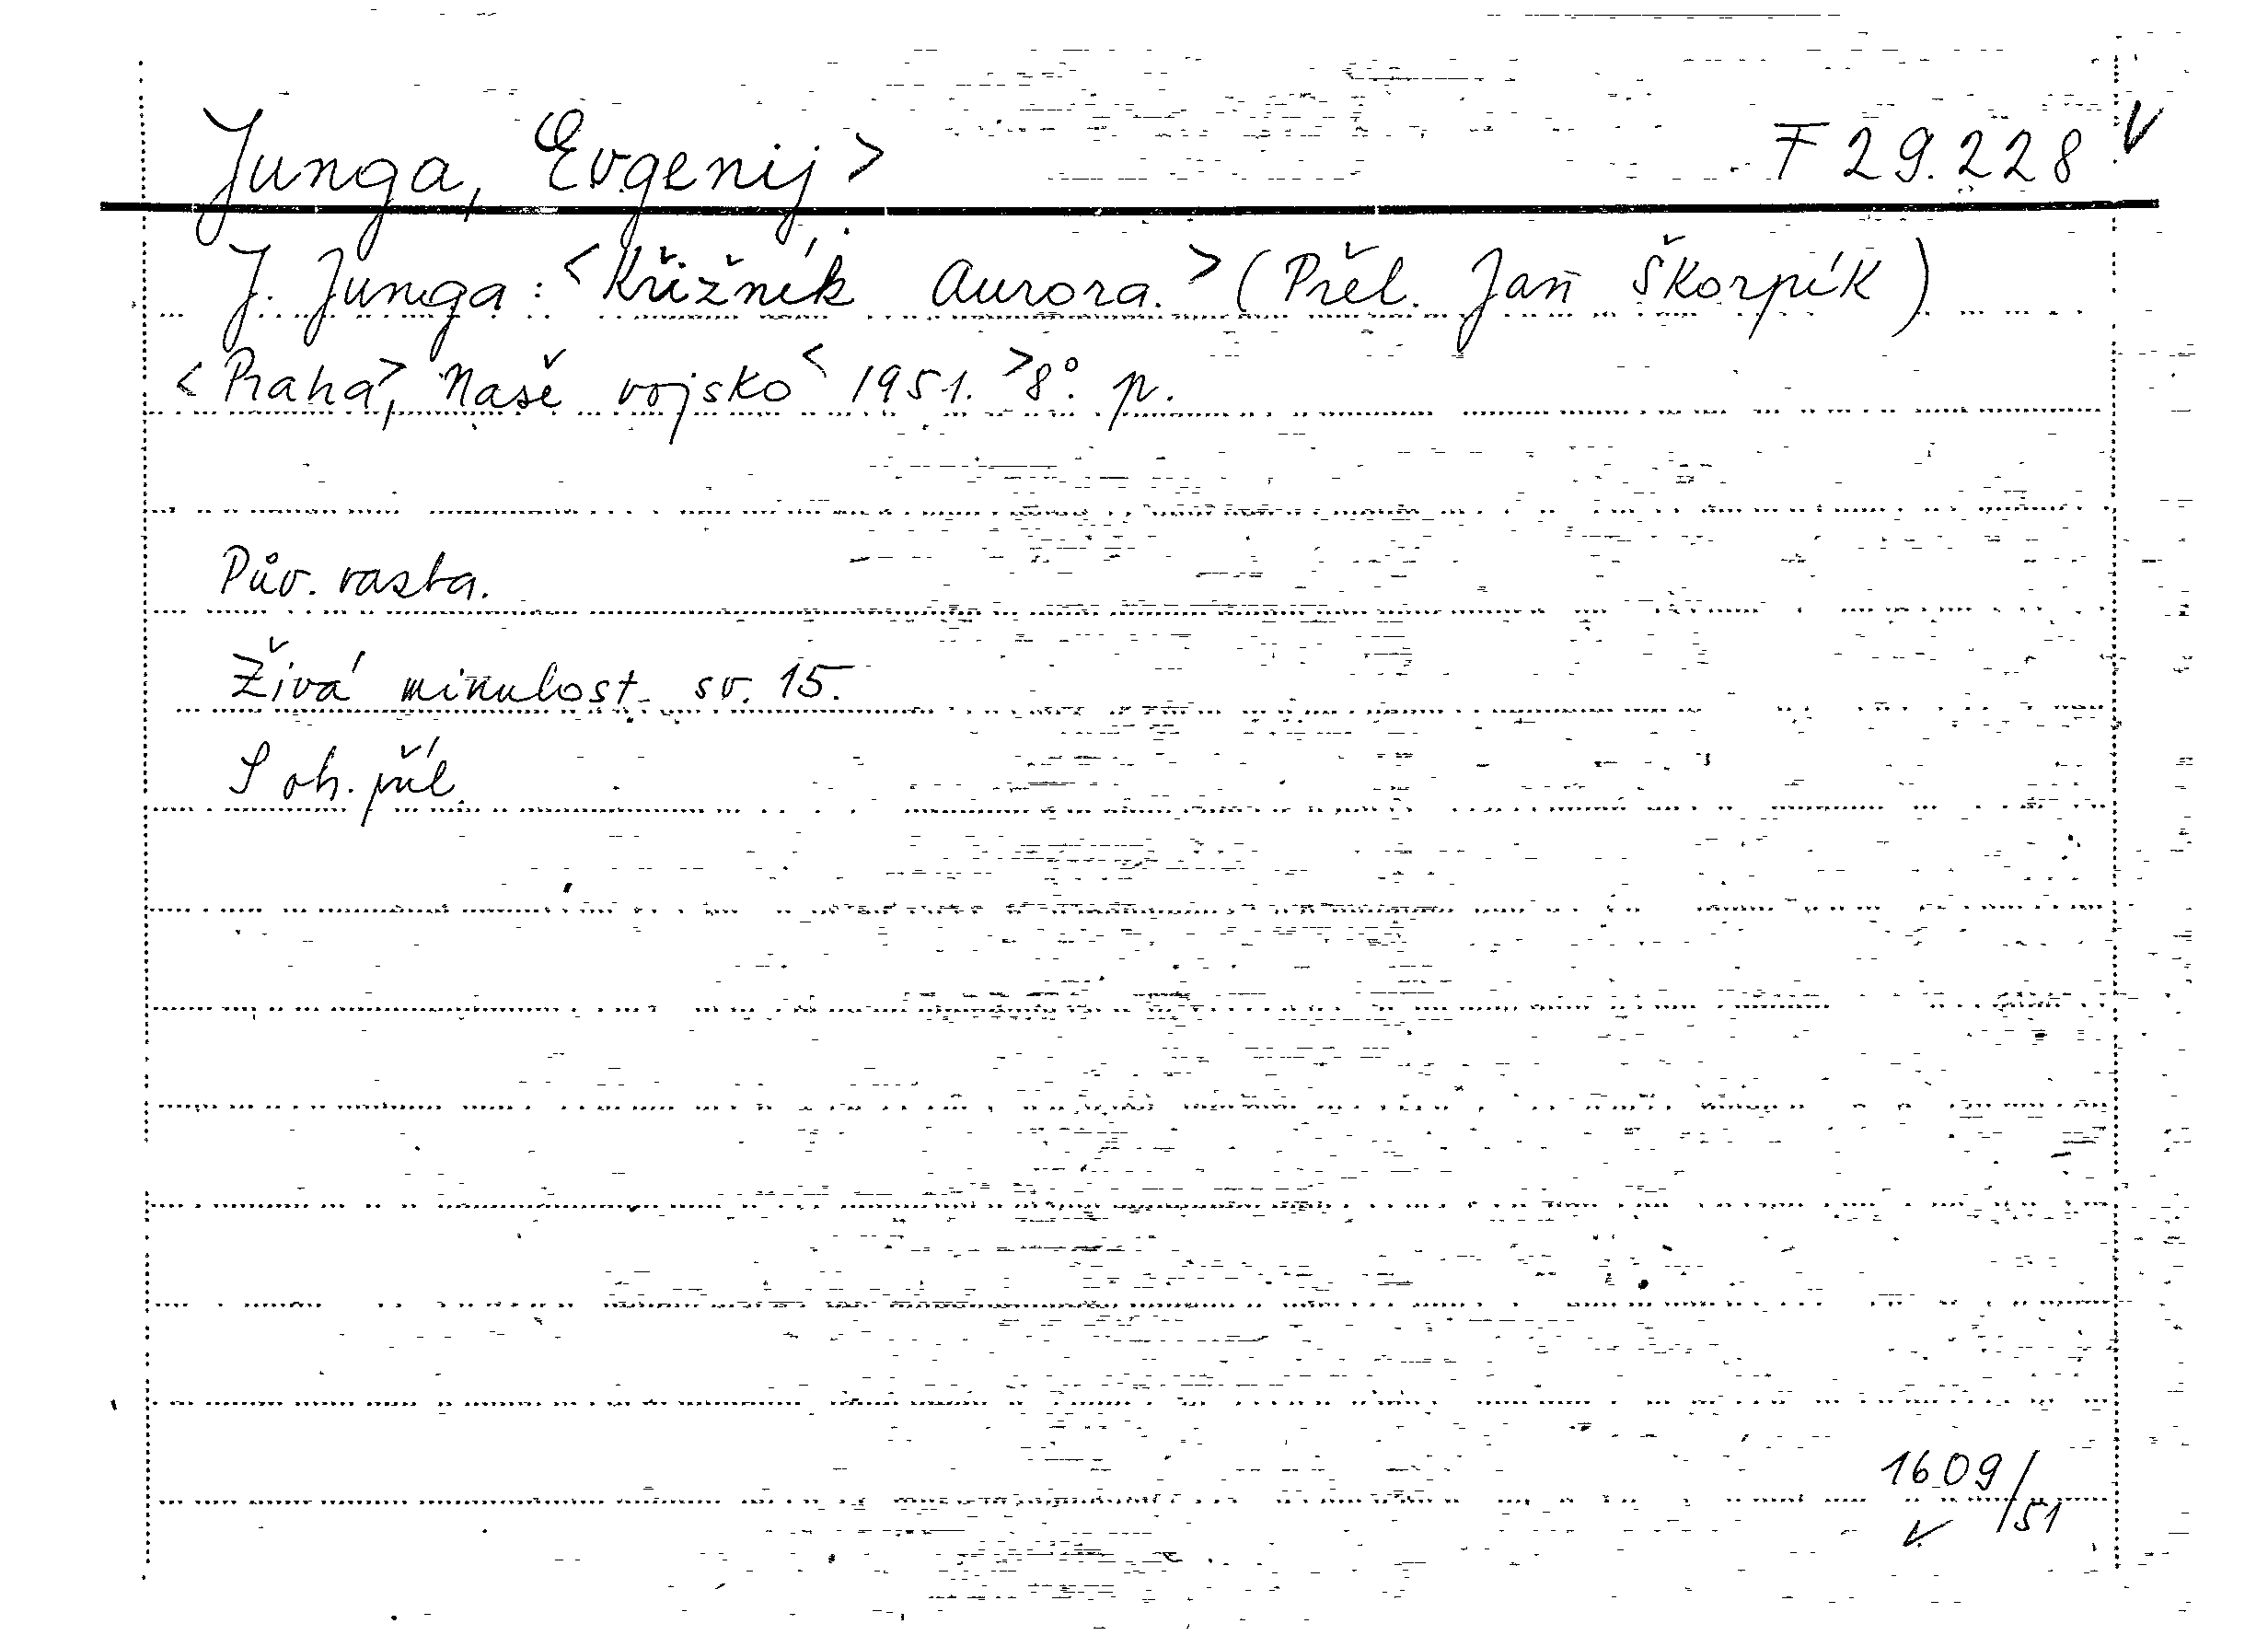 Junga, Evgenij> F 29.228 V
J. Junga: <Křižník Aurora.> (Přel. Jan Škorpík)
<Praha>, Naše vojsko <1951.> 8°. p.
Pův. vazba.
Živá minulost sv. 15.
S ob. příl.
1609/51